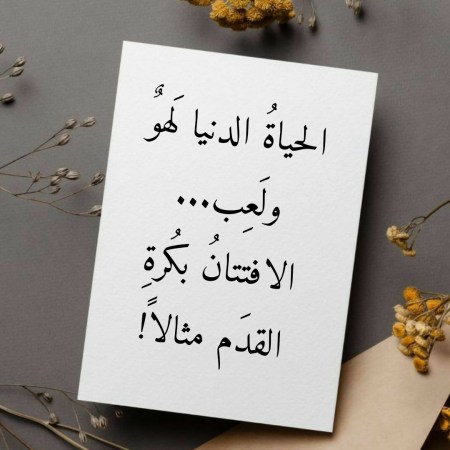 الحياةُ الدنيا لَهوٌ
ولَعِب...
الافتتانُ بكُرةِ
القدَم مثالاً!